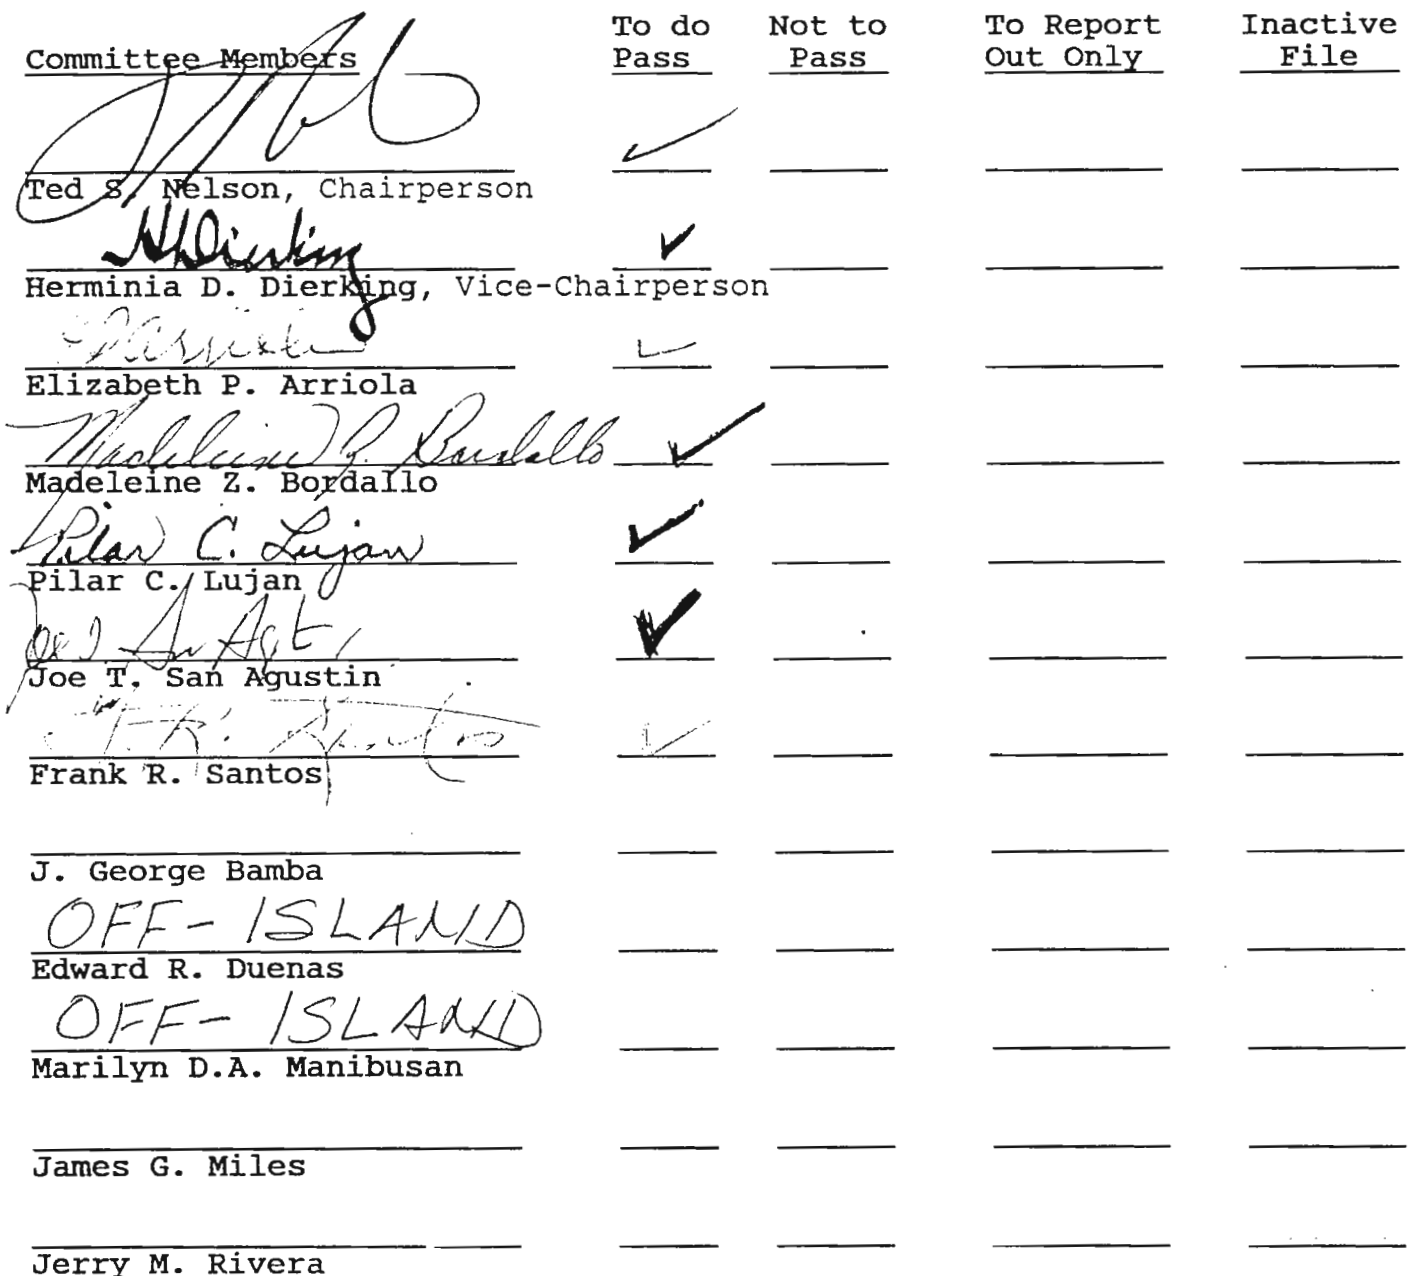 To do Not to To Report Inactive
Committee Members Pass Pass Out Only File
✓
Ted S. Nelson, Chairperson
HDierking ✓
Herminia D. Dierking, Vice-Chairperson
✓
Elizabeth P. Arriola
Madeleine Z. Bordallo ✓
Madeleine Z. Bordallo
Pilar C. Lujan ✓
Pilar C. Lujan
✓
Joe T. San Agustin
F. R. Santos ✓
Frank R. Santos
J. George Bamba
OFF-ISLAND
Edward R. Duenas
OFF-ISLAND
Marilyn D.A. Manibusan
James G. Miles
Jerry M. Rivera